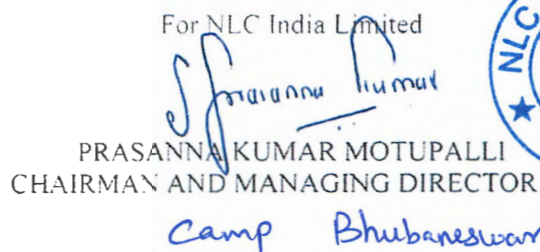 For NLC India Limited
NLC
PRASANNA KUMAR MOTUPALLI
CHAIRMAN AND MANAGING DIRECTOR
Camp Bhubaneswar